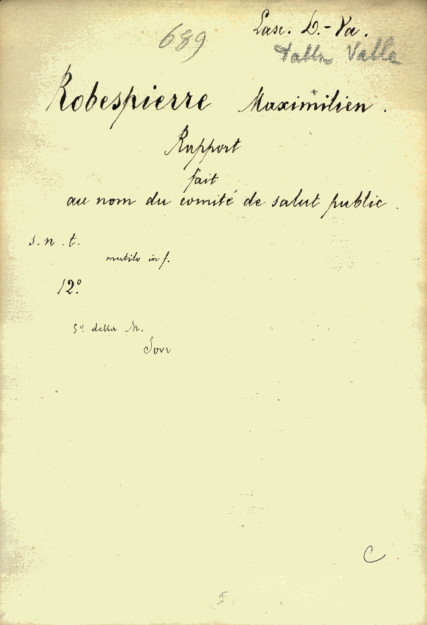 689
Lasc. D.-Va.
Dalla Valle
Robespierre Maximilien.
Rapport
fait
au nom du comité de salut public.
s. n. t.
mutilo in f.
12º
5º della M.
C